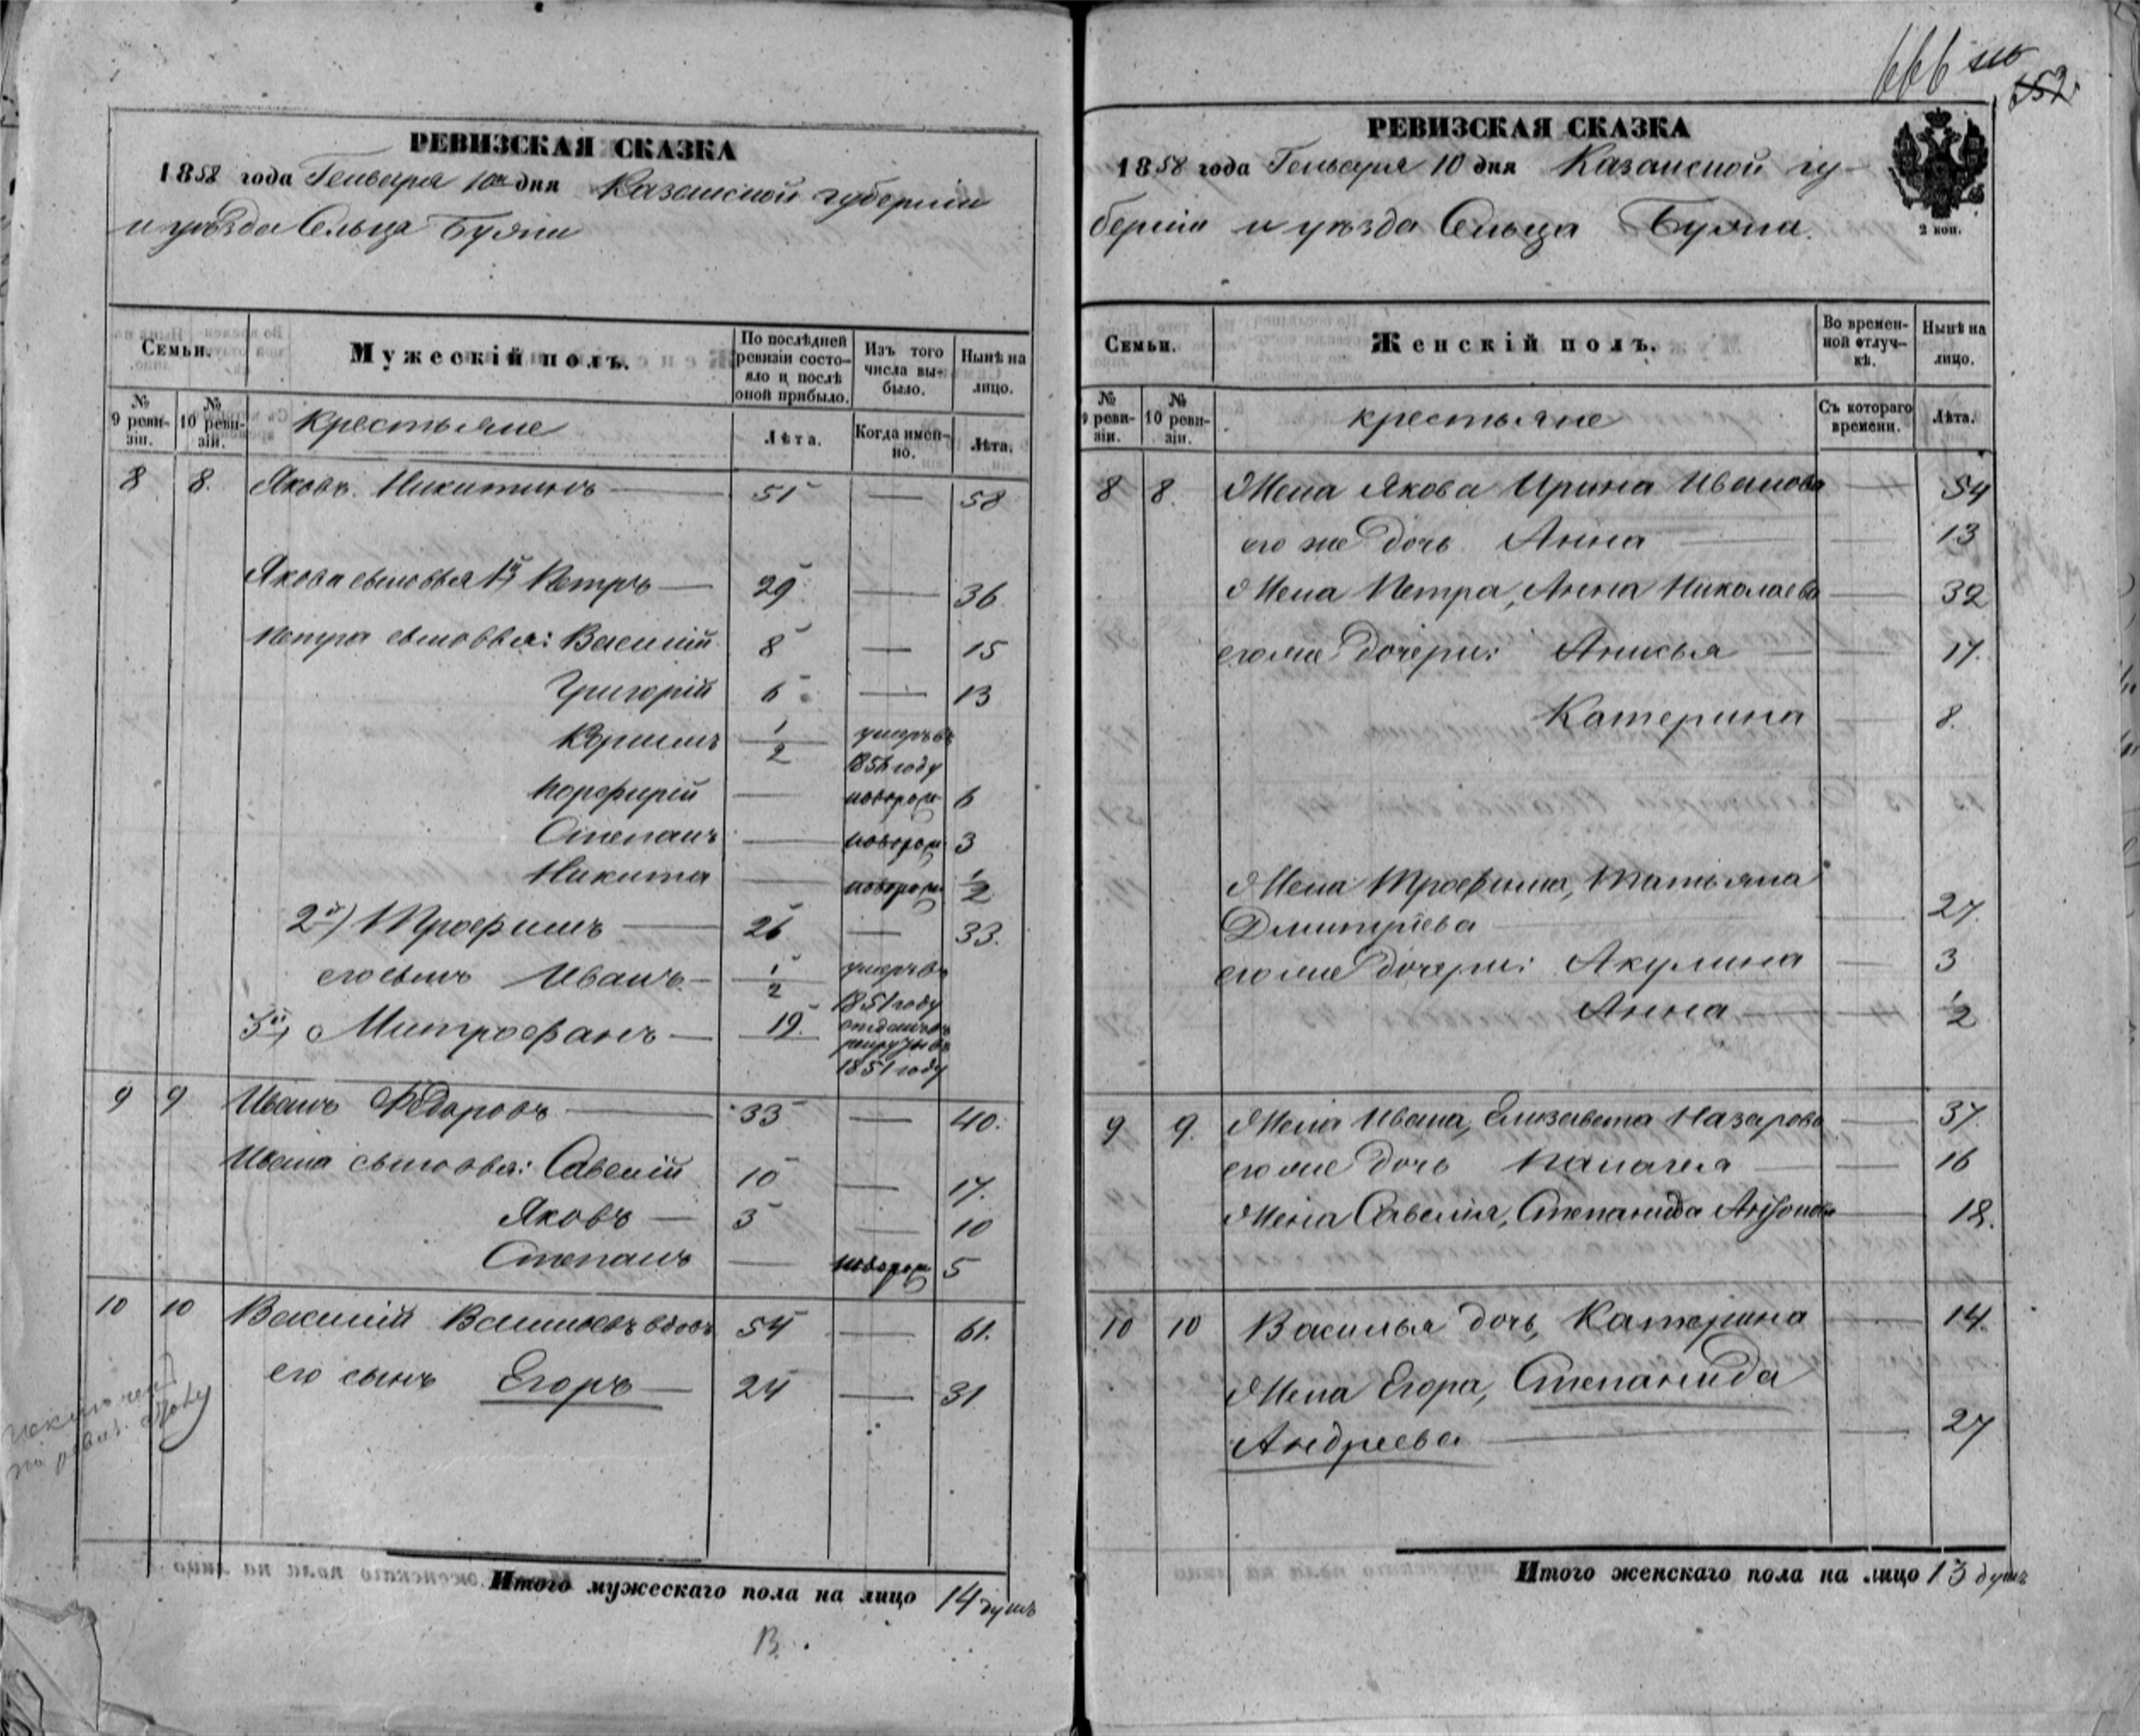 666
РЕВИЗСКАЯ СКАЗКА
1858 года Генваря 10го дня Казанской губернии
и уѣзда Сельца Буяни
Семьи.
Мужескій полъ.
По послѣдней ревизіи состояло и послѣ оной прибыло.
Изъ того числа выбыло.
Нынѣ на лицо.
№ 9 ревизіи.
№ 10 ревизіи.
крестьяне
Лѣта.
Когда именно.
Лѣта.
8 8. Яковъ Никитинъ 51 — 58
Якова сыновья 1й) Петръ — 29 — 36.
Петра сыновья: Василій 8 — 15
Григорій 6 — 13
1/2 умеръ въ
185 году
Порфирій — новорож 6
Степанъ — новорож 3
Никита — новорож 1/2
2й) Трофимъ — 26 — 33.
его сынъ Иванъ — 1/2 умеръ въ
1851 году
3й) Митрофанъ — 19. отданъ въ
рекруты въ
1851 году
9 9 Иванъ Ѳедоровъ — 33 — 40.
Ивана сыновья: Савелій 10 — 17.
Яковъ — 3 — 10
Степанъ — новорож 5
10 10 Василій Васильевъ вдовъ 54 — 61.
его сынъ Егоръ — 24 — 31
исключен
по ревиз.
Итого мужескаго пола на лицо 14 душъ
В.
РЕВИЗСКАЯ СКАЗКА
1858 года Генваря 10 дня Казанской гу-
берніи и уѣзда Сельца Буяна.
2 коп.
Семьи.
Женскій полъ.
Во временной отлучкѣ.
Нынѣ на лицо.
№ 9 ревизіи.
№ 10 ревизіи.
крестьяне
Съ котораго времени.
Лѣта.
8 8. Жена Якова Ирина Иванова — 54
его же дочь Анна — 13
Жена Петра, Анна Николаева — 32
его же дочери: Анисья — 17.
Катерина — 8.
Жена Трофима, Татьяна
Дмитріева — 27.
его же дочери: Акулина — 3
Анна — 1/2
9 9. Жена Ивана, Елизавета Назарова — 37.
его же дочь Палагея — 16
Жена Савелія, Степанида — 18.
10 10 Василья дочь, Катерина — 14.
Жена Егора, Степанида
Андреева — 27
Итого женскаго пола на лицо 13 душъ